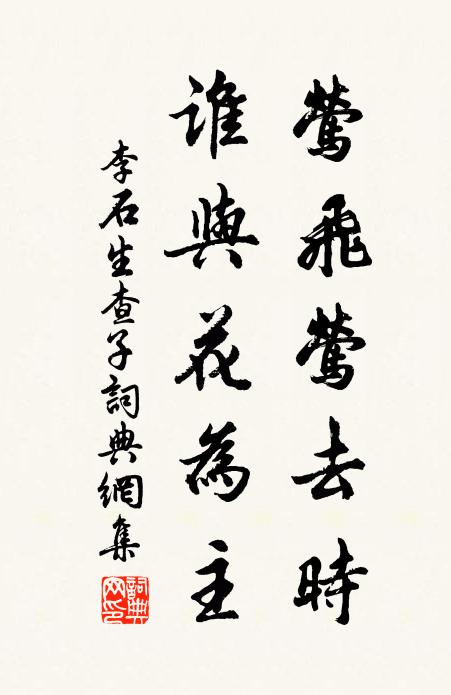 鶯飛鶯去時
誰與花為主
李石生查子詞典網集
詞典
网印